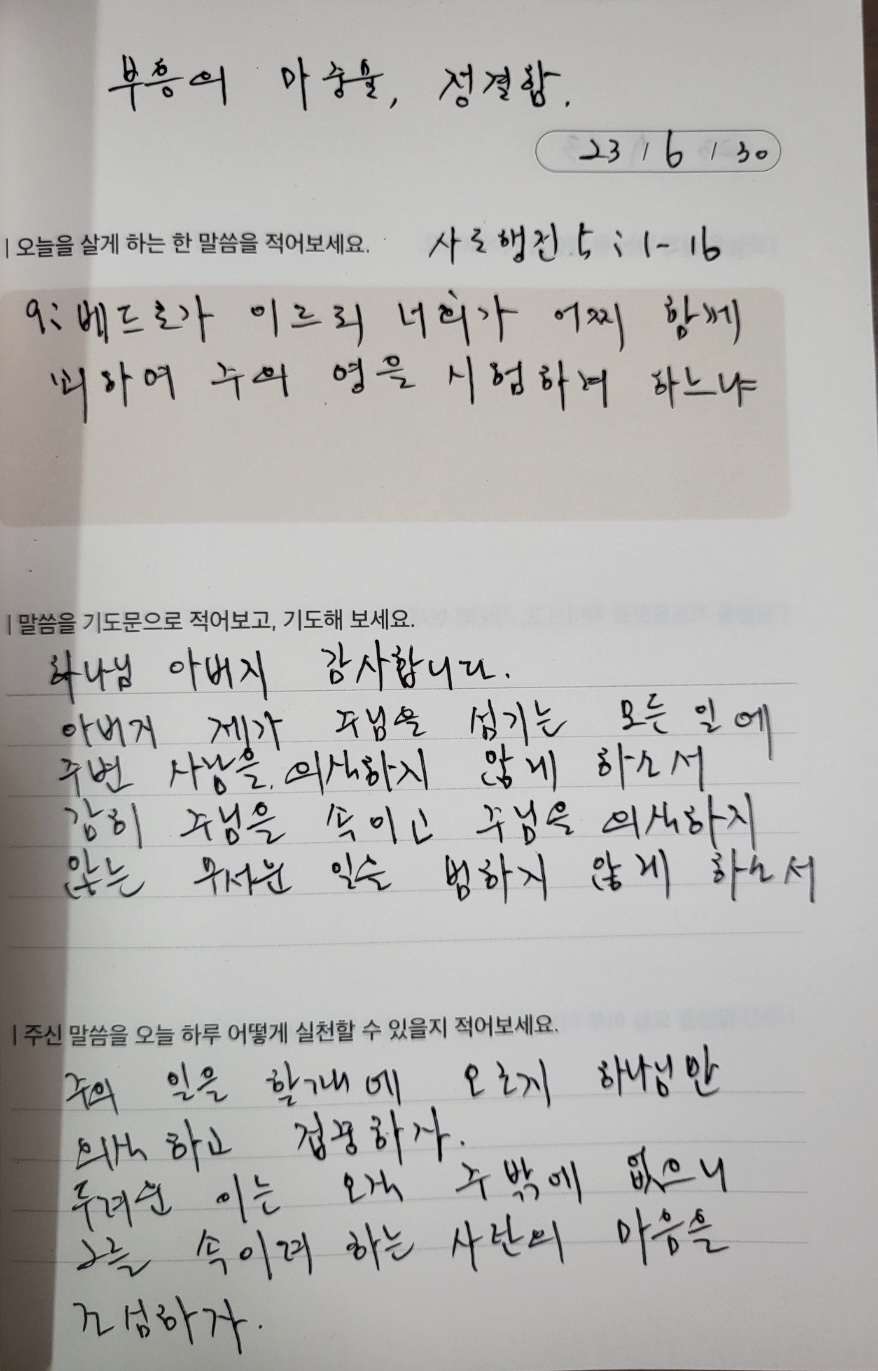 부흥의 마중물, 정결함.
23 / 6 / 30
| 오늘을 살게 하는 한 말씀을 적어보세요. 사도행전 5:1-16
9: 베드로가 이르되 너희가 어찌 함께
꾀하여 주의 영을 시험하려 하느냐
| 말씀을 기도문으로 적어보고, 기도해 보세요.
하나님 아버지 감사합니다.
아버지 제가 주님을 섬기는 모든 일에
주변 사람을 의식하지 않게 하소서
감히 주님을 속이고 주님을 의식하지
않는 무서운 일을 범하지 않게 하소서
| 주신 말씀을 오늘 하루 어떻게 실천할 수 있을지 적어보세요.
주의 일을 할 때에 오로지 하나님만
의식하고 집중하자.
두려운 이는 오직 주 밖에 없으니
그를 속이려 하는 사탄의 마음을
조심하자.